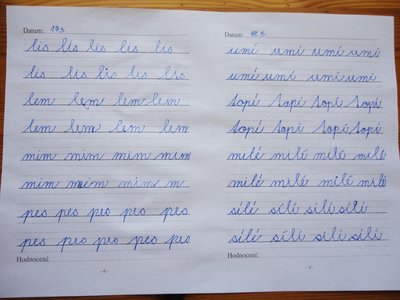 Datum: 17.3.
lis lis lis lis lis
lis lis lis lis lis
lem lem lem lem
lem lem lem lem
mim mim mim mim
mim mim mim m
pes pes pes pes pes
pes pes pes pes pes
Hodnocení:
- 6 -
Datum: 18.3.
umí umí umí umí
umí umí umí umí
topí topí topí topí
topí topí topí topí
milé milé milé milé
milé milé milé milé
sílí sílí sílí sílí
sílí sílí sílí sílí
Hodnocení: